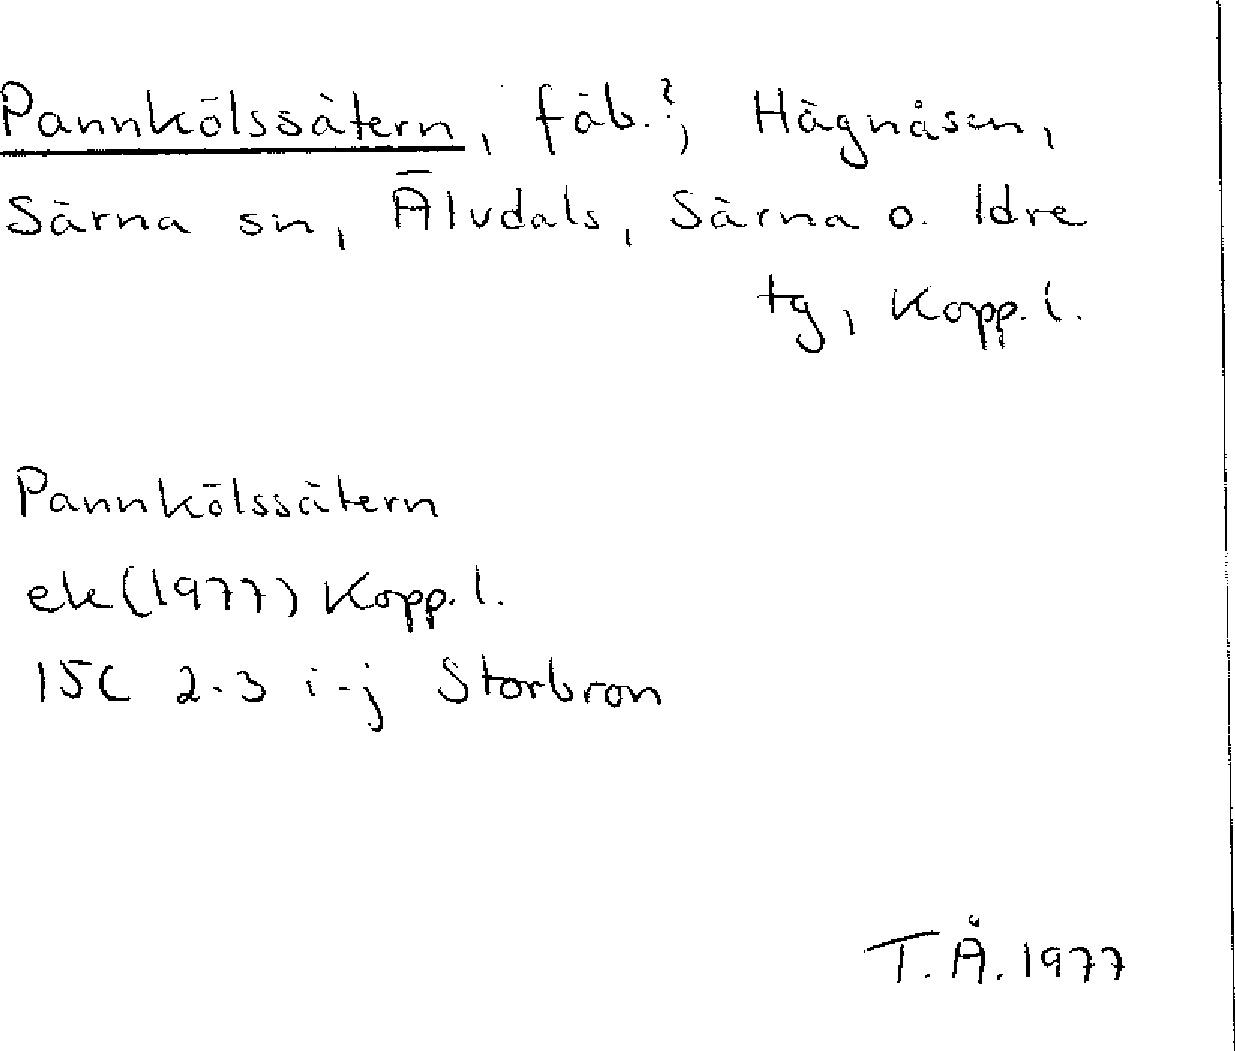 Pannkölssätern, fäb.?, Hägnåsen,
Särna sn, Älvdals, Särna o. Idre
tg, Kopp. l.
Pannkölssätern
ek (1977) Kopp. l.
15C 2-3 i-j Storbron
T.Å. 1977